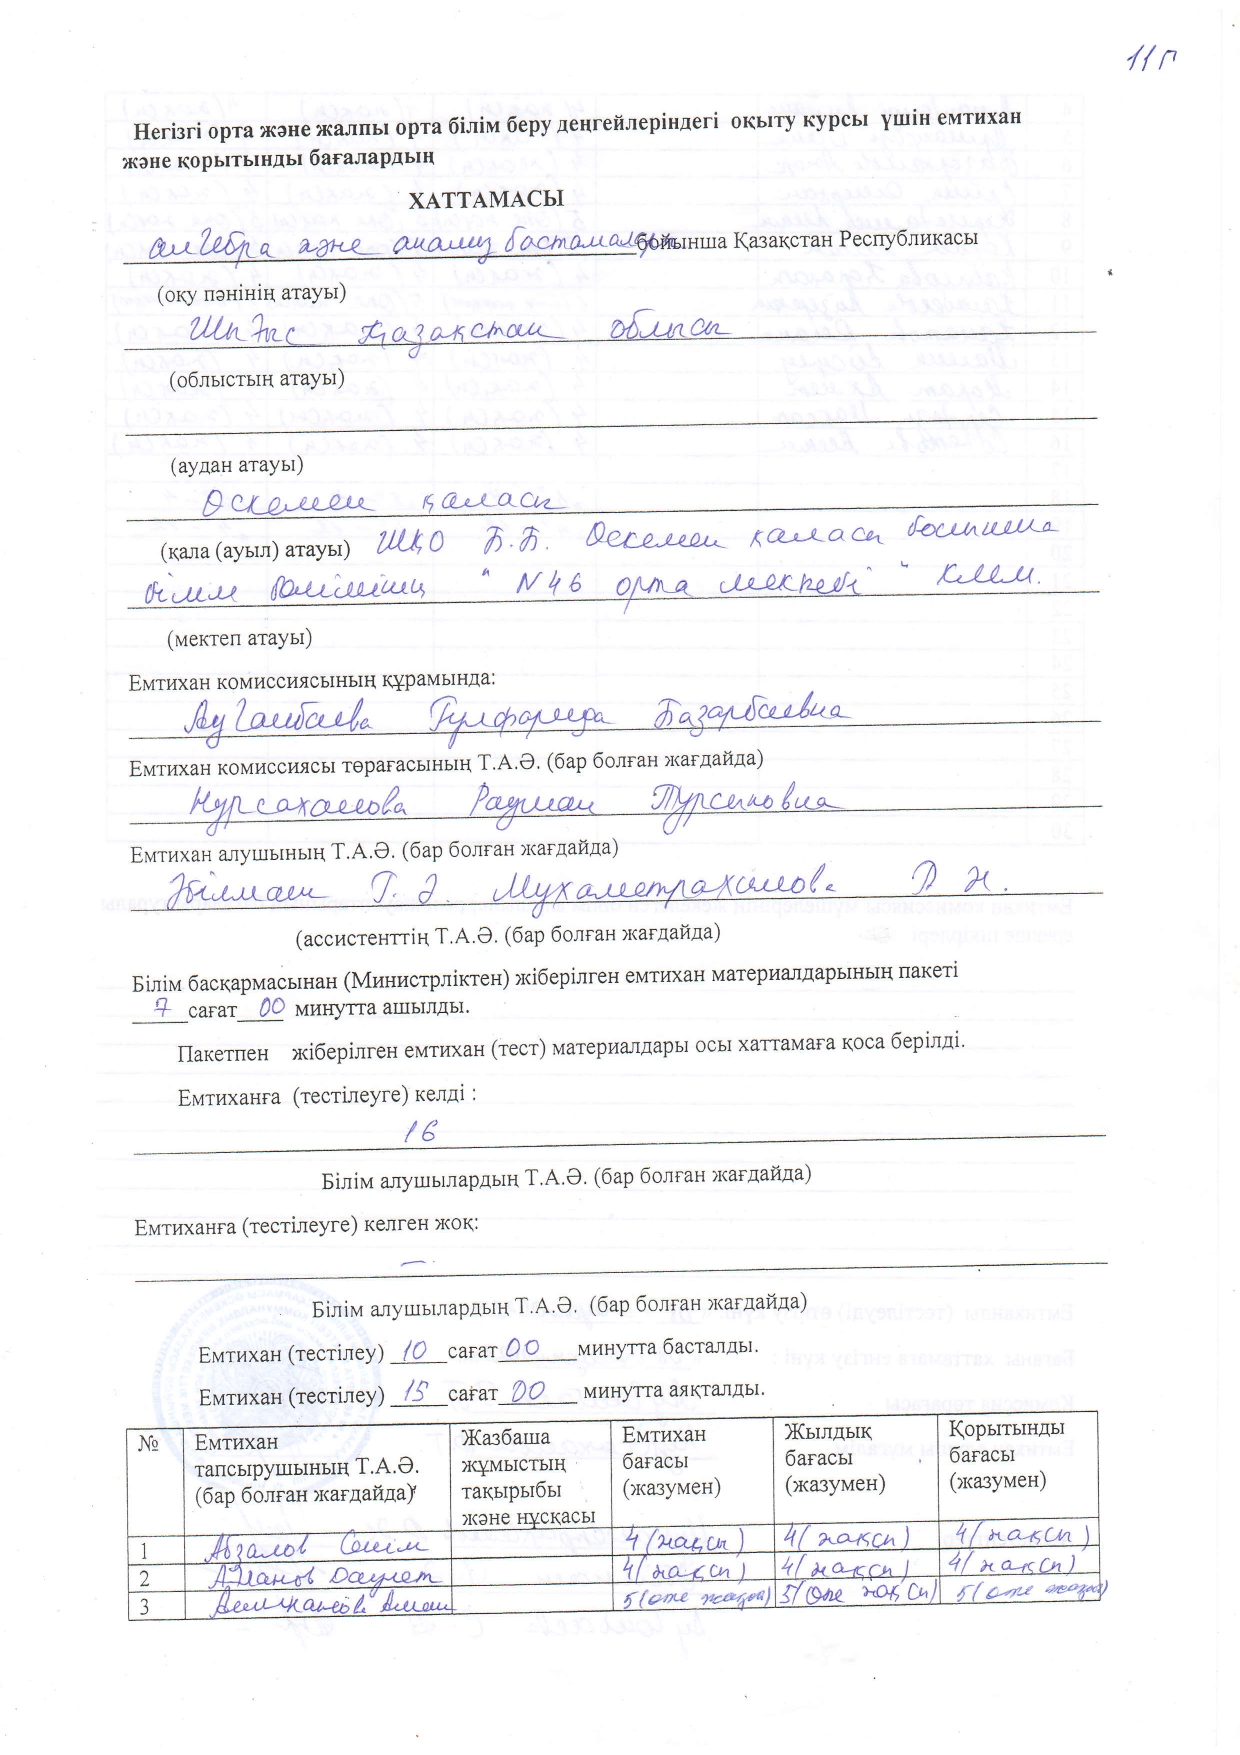 11 Г
Негізгі орта және жалпы орта білім беру деңгейлеріндегі оқыту курсы үшін емтихан
және қорытынды бағалардың
ХАТТАМАСЫ
алгебра және анализ бастамалары бойынша Қазақстан Республикасы
(оқу пәнінің атауы)
Шығыс Қазақстан облысы
(облыстың атауы)
(аудан атауы)
Өскемен қаласы
(қала (ауыл) атауы) ШҚО Б.Б. Өскемен қаласы бойынша
білім бөлімінің "N46 орта мектебі" КММ.
(мектеп атауы)
Емтихан комиссиясының құрамында:
Ауғамбаева Гүлфарида Базарбаевна
Емтихан комиссиясы төрағасының Т.А.Ә. (бар болған жағдайда)
Нурсаханова Раушан Турсыновна
Емтихан алушының Т.А.Ә. (бар болған жағдайда)
Г. Ә Мухаметрахимова Д Н.
(ассистенттің Т.А.Ә. (бар болған жағдайда)
Білім басқармасынан (Министрліктен) жіберілген емтихан материалдарының пакеті
7 сағат 00 минутта ашылды.
Пакетпен жіберілген емтихан (тест) материалдары осы хаттамаға қоса берілді.
Емтиханға (тестілеуге) келді :
16
Білім алушылардың Т.А.Ә. (бар болған жағдайда)
Емтиханға (тестілеуге) келген жоқ:
–
Білім алушылардың Т.А.Ә. (бар болған жағдайда)
Емтихан (тестілеу) 10 сағат 00 минутта басталды.
Емтихан (тестілеу) 15 сағат 00 минутта аяқталды.
№ Емтихан тапсырушының Т.А.Ә. (бар болған жағдайда) Жазбаша жұмыстың тақырыбы және нұсқасы Емтихан бағасы (жазумен) Жылдық бағасы (жазумен) Қорытынды бағасы (жазумен)
1 Абзалов 4 (жақсы) 4 (жақсы) 4 (жақсы)
2 Даулет 4 (жақсы) 4 (жақсы) 4 (жақсы)
3 5 (өте жақсы) 5 (өте жақсы) 5 (өте жақсы)